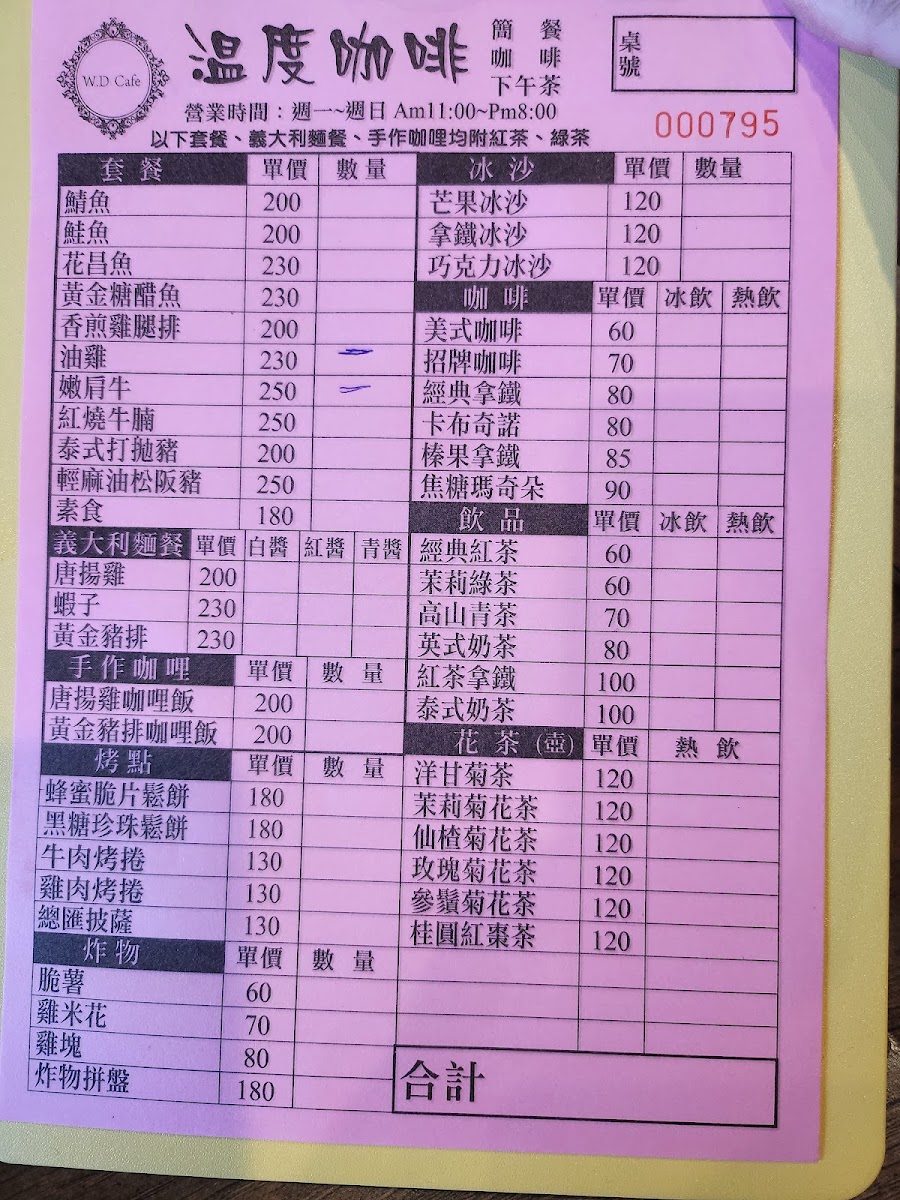 W.D Cafe
溫度咖啡
簡餐
咖啡
下午茶
桌號
營業時間：週一~週日 Am11:00~Pm8:00
000795
以下套餐、義大利麵餐、手作咖哩均附紅茶、綠茶
套餐 單價 數量
鯖魚 200
鮭魚 200
花昌魚 230
黃金糖醋魚 230
香煎雞腿排 200
油雞 230
嫩肩牛 250
紅燒牛腩 250
泰式打拋豬 200
輕麻油松阪豬 250
素食 180
義大利麵餐 單價 白醬 紅醬 青醬
唐揚雞 200
蝦子 230
黃金豬排 230
手作咖哩 單價 數量
唐揚雞咖哩飯 200
黃金豬排咖哩飯 200
烤點 單價 數量
蜂蜜脆片鬆餅 180
黑糖珍珠鬆餅 180
牛肉烤捲 130
雞肉烤捲 130
總匯披薩 130
炸物 單價 數量
脆薯 60
雞米花 70
雞塊 80
炸物拼盤 180
冰沙 單價 數量
芒果冰沙 120
拿鐵冰沙 120
巧克力冰沙 120
咖啡 單價 冰飲 熱飲
美式咖啡 60
招牌咖啡 70
經典拿鐵 80
卡布奇諾 80
榛果拿鐵 85
焦糖瑪奇朵 90
飲品 單價 冰飲 熱飲
經典紅茶 60
茉莉綠茶 60
高山青茶 70
英式奶茶 80
紅茶拿鐵 100
泰式奶茶 100
花茶(壺) 單價 熱飲
洋甘菊茶 120
茉莉菊花茶 120
仙楂菊花茶 120
玫瑰菊花茶 120
參鬚菊花茶 120
桂圓紅棗茶 120
合計